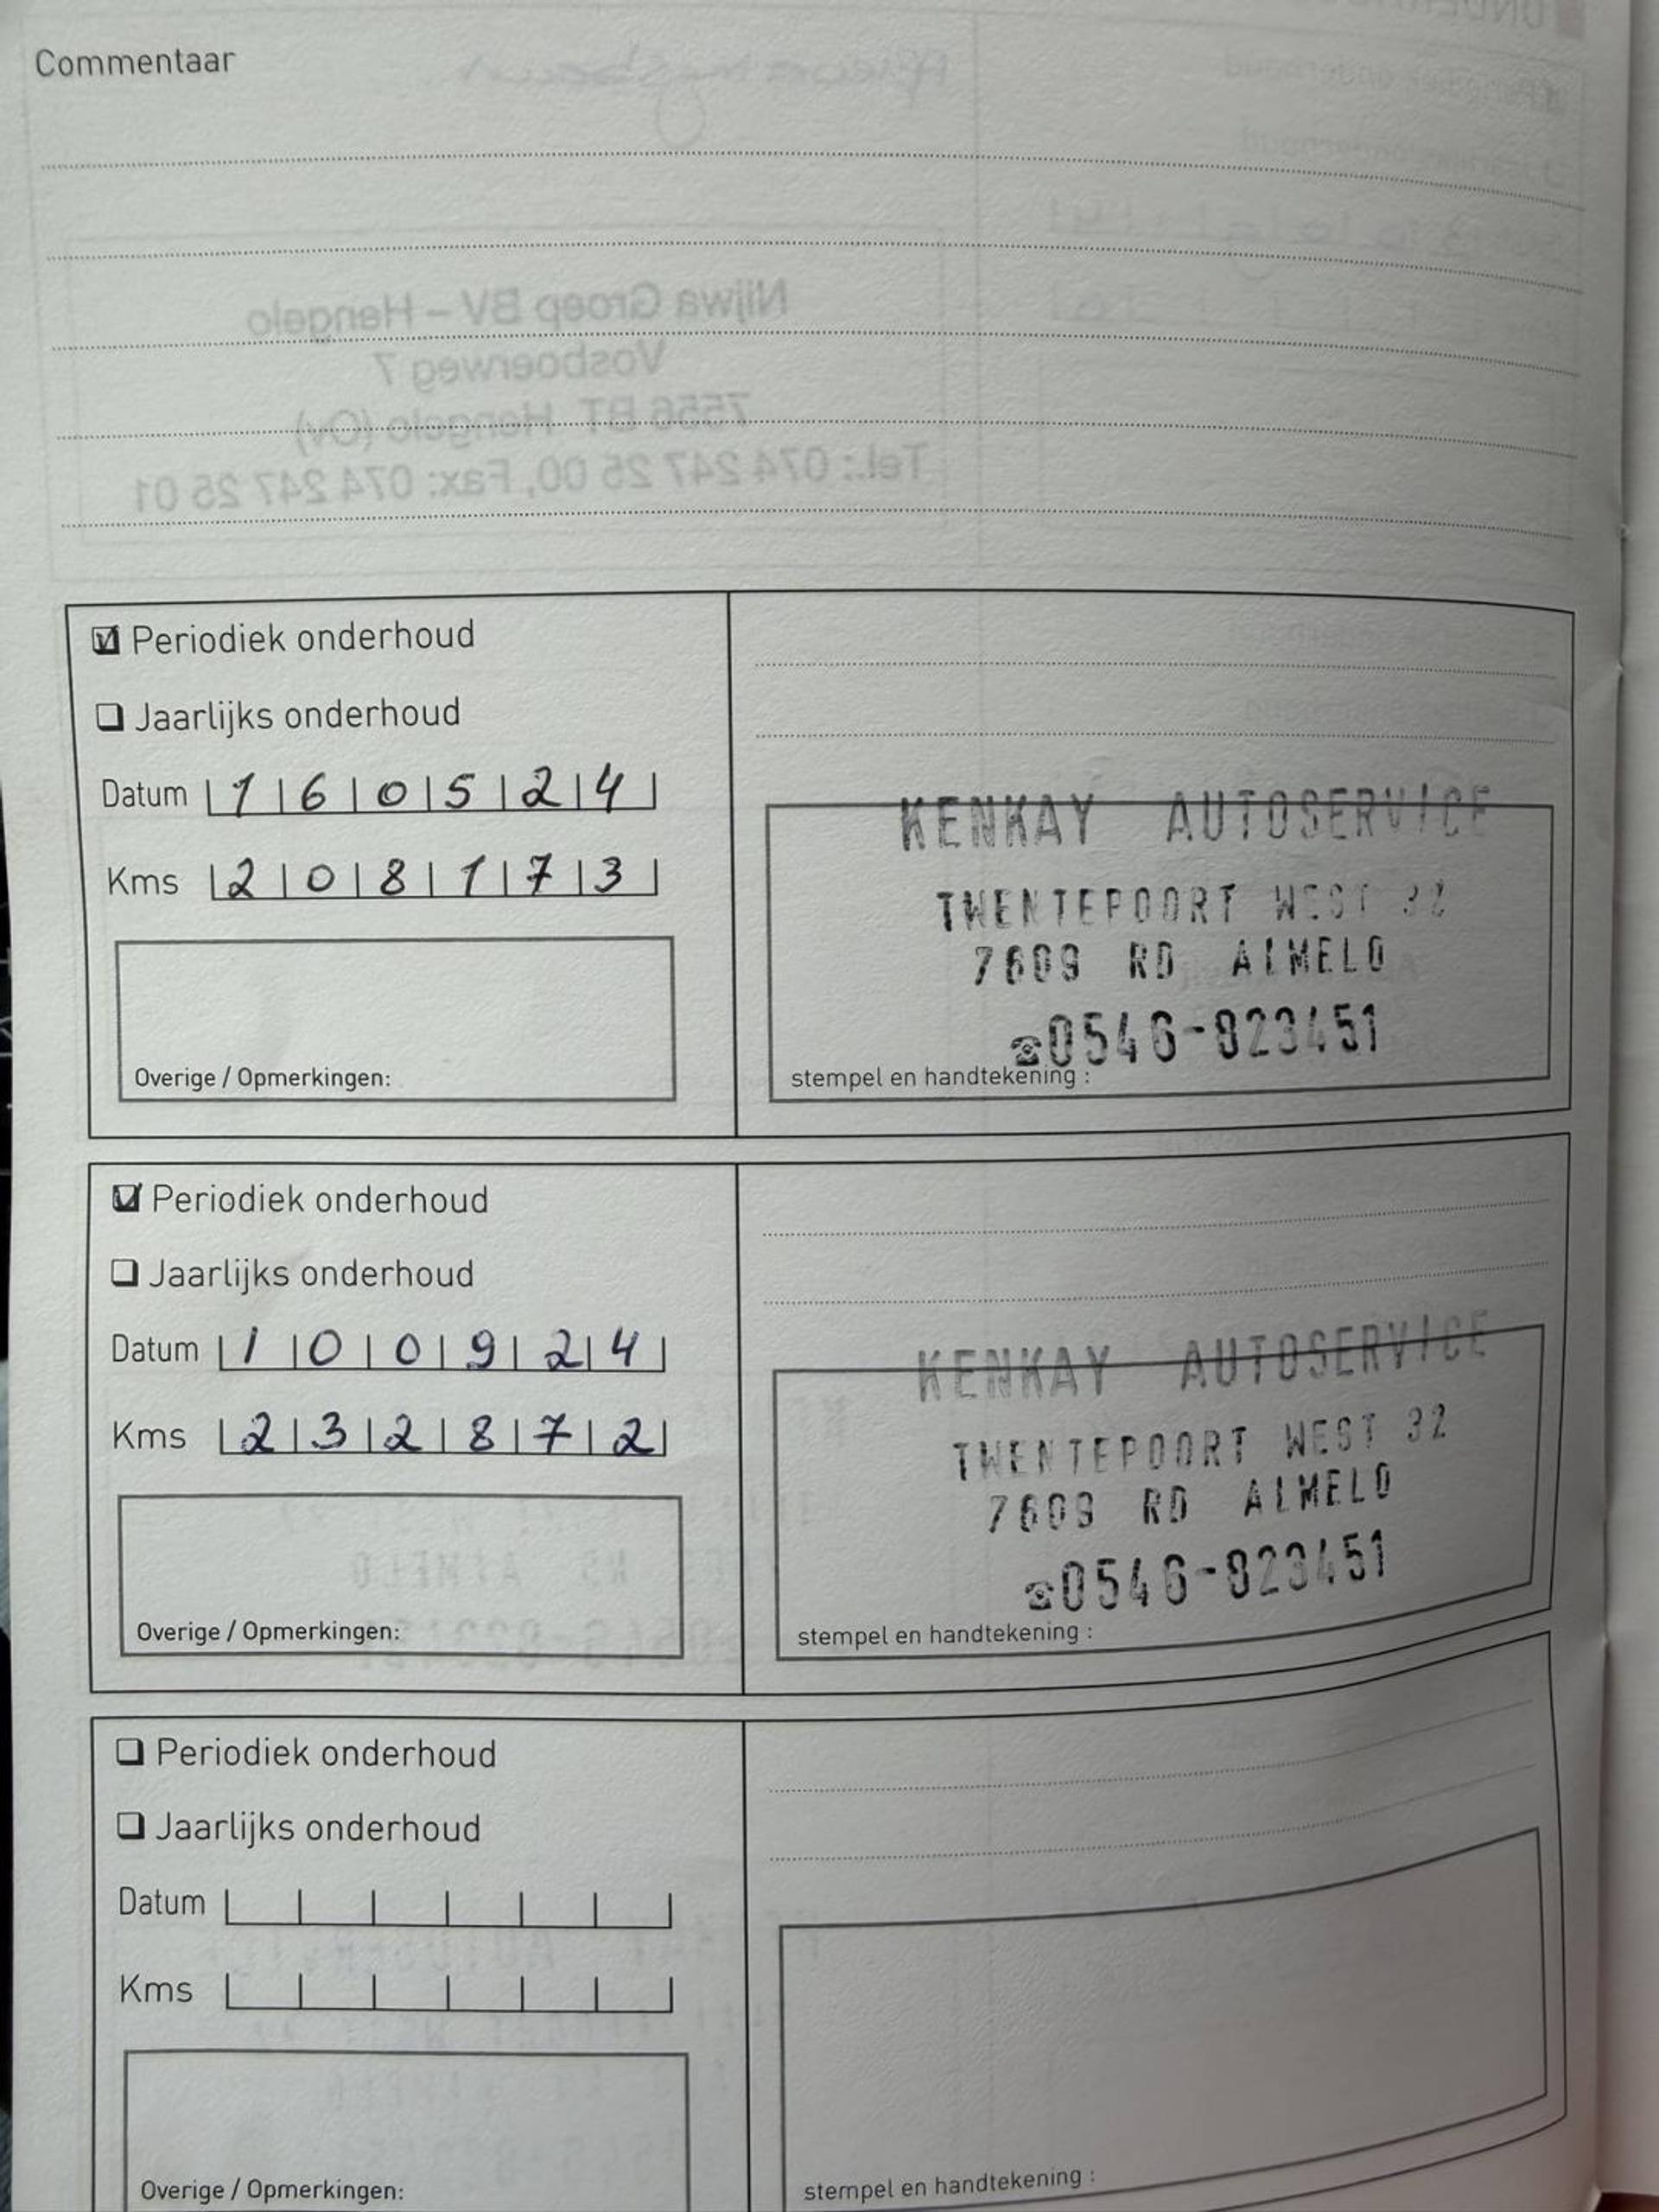 Commentaar
Nijwa Groep BV – Hengelo
Vosboerweg 7
7556 BT Hengelo (Ov)
Tel.: 074 247 25 00, Fax: 074 247 25 01
☑ Periodiek onderhoud
❑ Jaarlijks onderhoud
Datum 1 6 0 5 2 4
Kms 2 0 8 1 7 3
Overige / Opmerkingen:
KENKAY AUTOSERVICE
TWENTEPOORT WEST 32
7609 RD ALMELO
☎0546-823451
stempel en handtekening :
☑ Periodiek onderhoud
❑ Jaarlijks onderhoud
Datum 1 0 0 9 2 4
Kms 2 3 2 8 7 2
Overige / Opmerkingen:
KENKAY AUTOSERVICE
TWENTEPOORT WEST 32
7609 RD ALMELO
☎0546-823451
stempel en handtekening :
❑ Periodiek onderhoud
❑ Jaarlijks onderhoud
Datum
Kms
Overige / Opmerkingen:
stempel en handtekening :